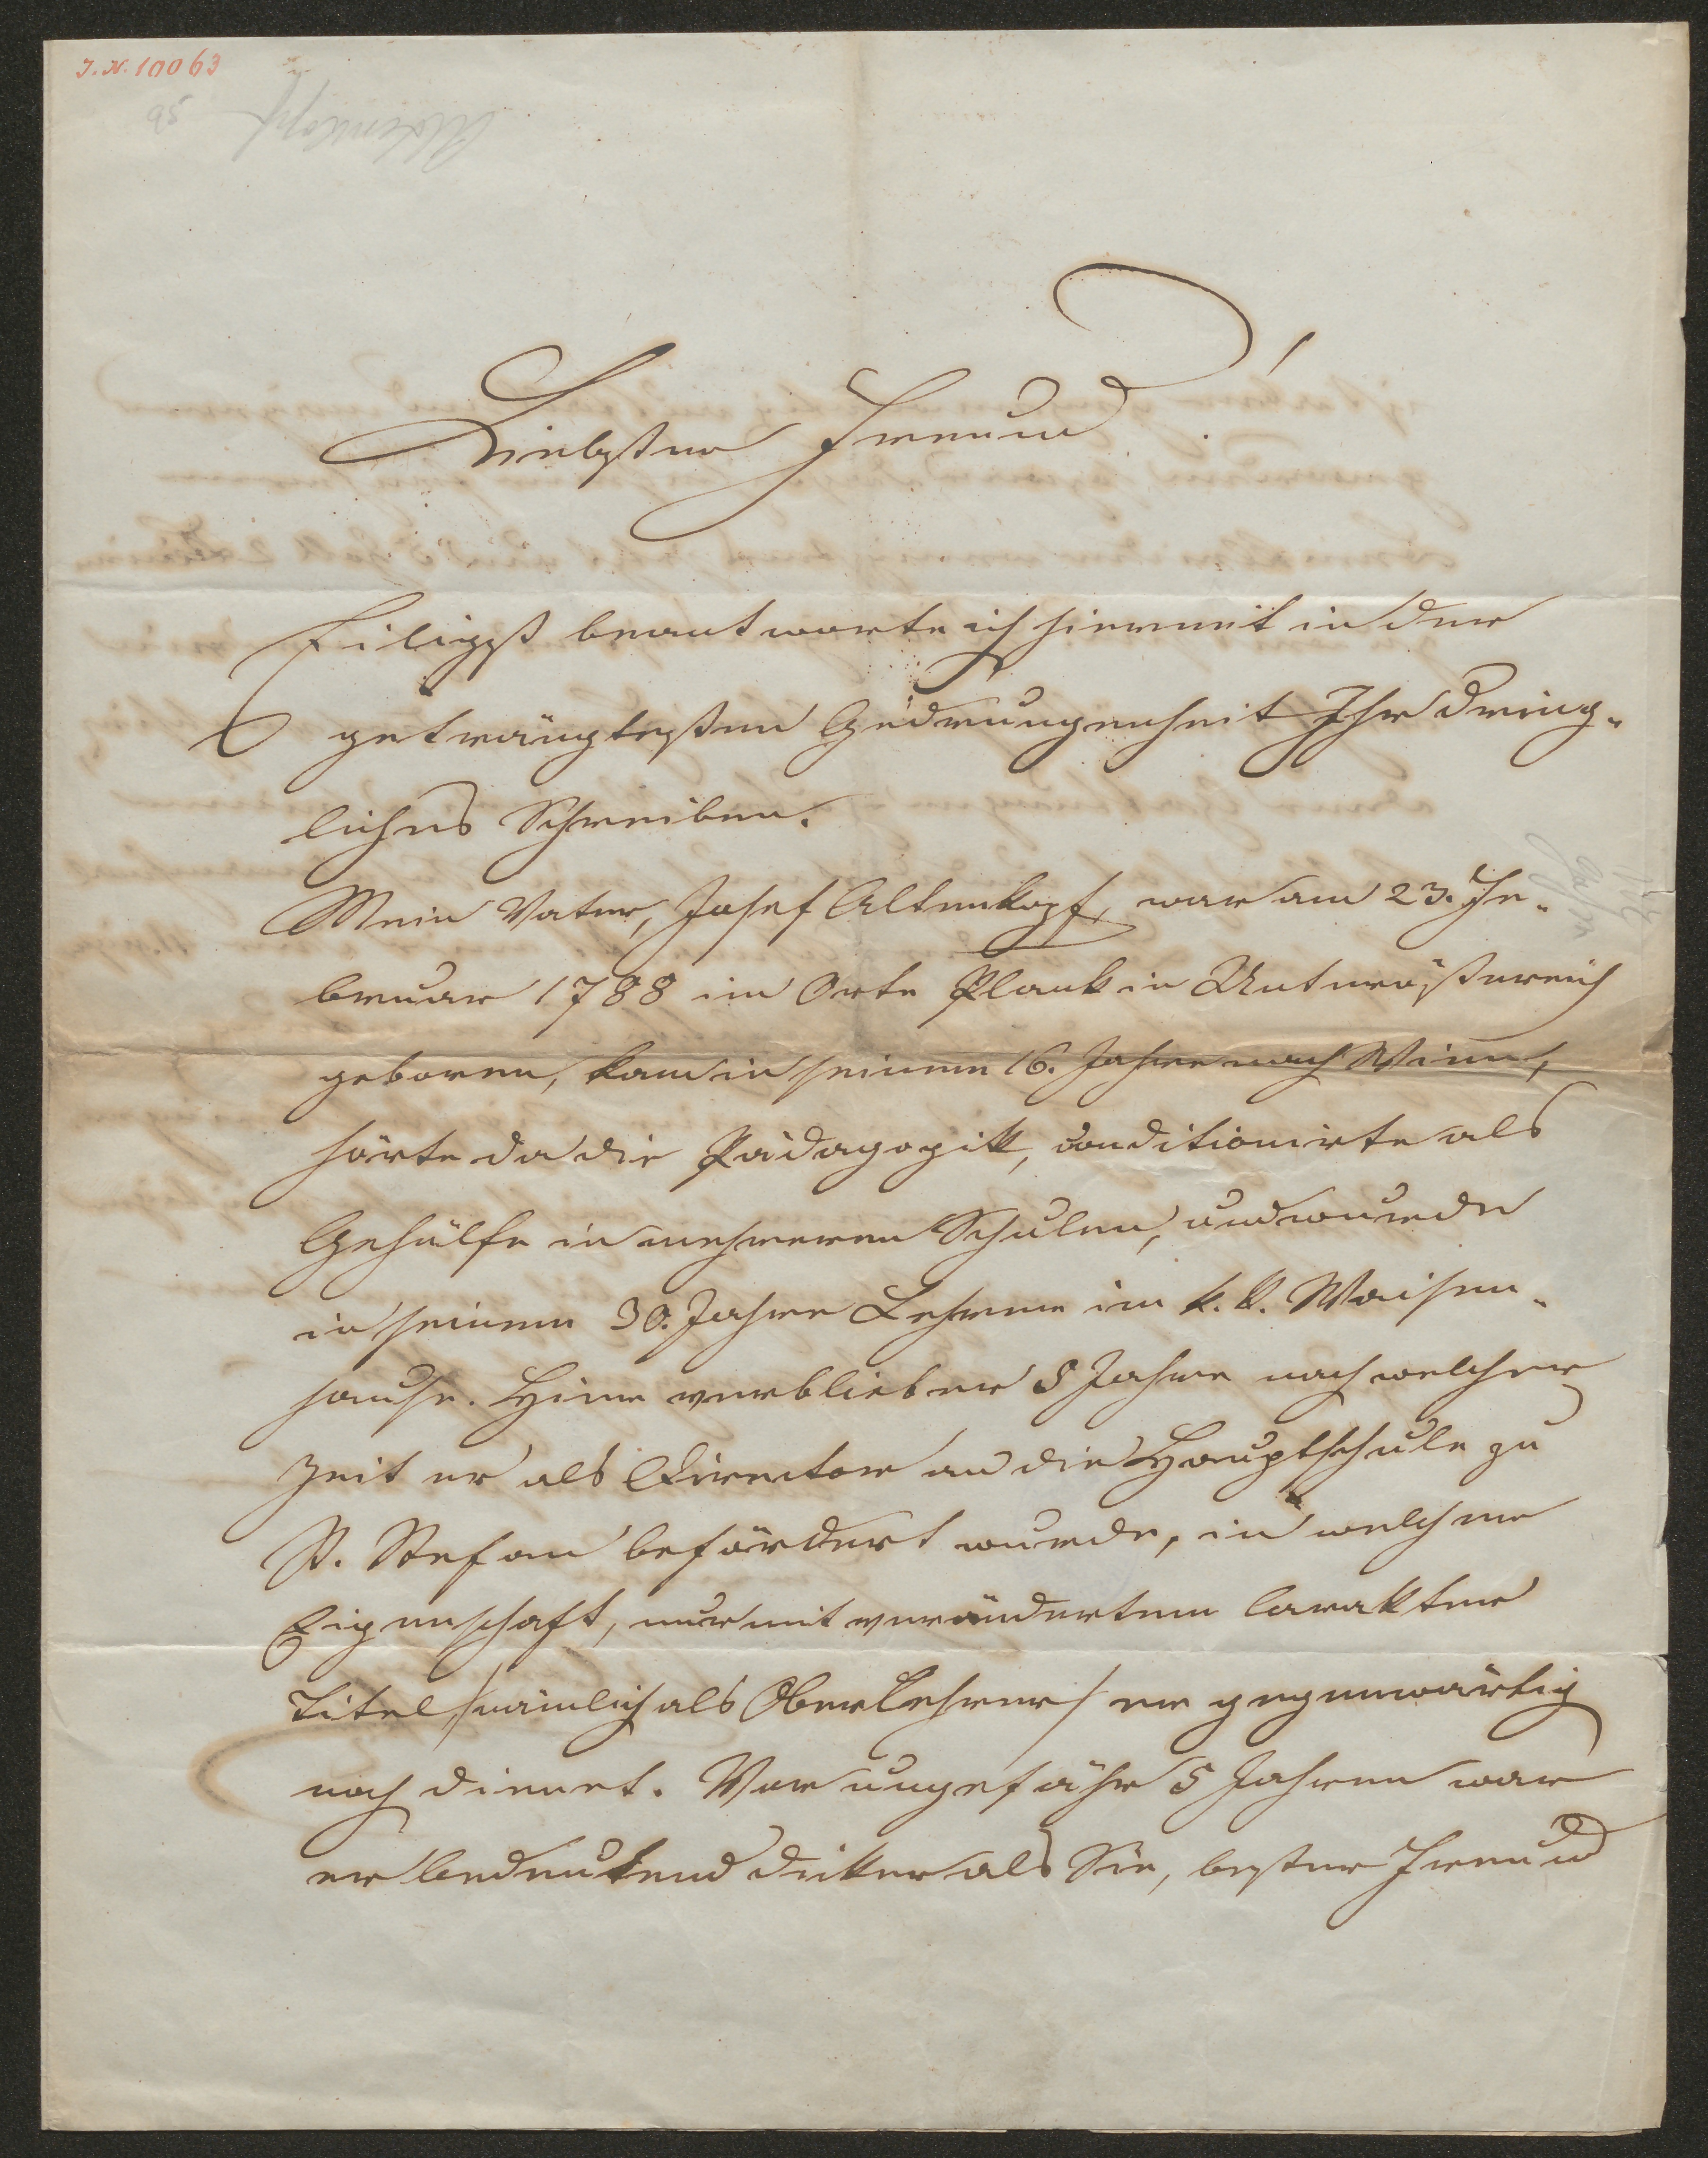 J. N. 10063
95
Altenkopf
Liebster Freund!
Eiligst beantworte ich hiermit in der
geträngtesten Gedrungenheit Ihr dring-
liches Schreiben.
Mein Vater, Josef Altenkopf, war am 23. Fe-
bruar 1788 im Orte Plank in Unterößtereich
geboren, kam in seinem 16. Jahre nach Wien,
hörte da die Pädagogik, conditionirte als
Gehülfe in mehreren Schulen, und wurde
in seinem 30. Jahre Lehrer im k. k. Waisen-
hause. Hier verblieb er 8 Jahre nach welcher
Zeit er als Director an die Hauptschule zu
St. Stefan befördert wurde, in welcher
Eigenschaft, nur mit verändertem Carakter
Titel /nämlich als Oberlehrer/ er gegenwärtig
noch dienet. Vor ungefähr 5 Jahren war
er bedeutend dicker als Sie, bester Freund